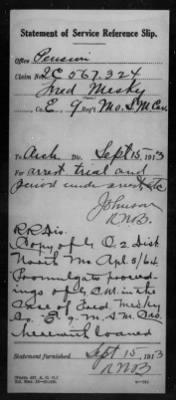 Statement of Service Reference Slip.
Office Pension
Claim No. 2C 567,324
Fred Mesky
Co. E, 9 Reg't Mo. S M Cav.
To Arch Div. Sept 15, 1913
For arrest trial and
period under arrest, etc
Johnson
R.N.B.
R.R. Div.
Copy of G.O. 2 Dist
North Mo Apl 8/64
Promulgate proceed-
ings of G.C.M. in the
case of Fred. Mesky
Co. E 9 M.S.M. Cav.
herewith loaned
Statement furnished. Sept 15, 1913
R.N.B.